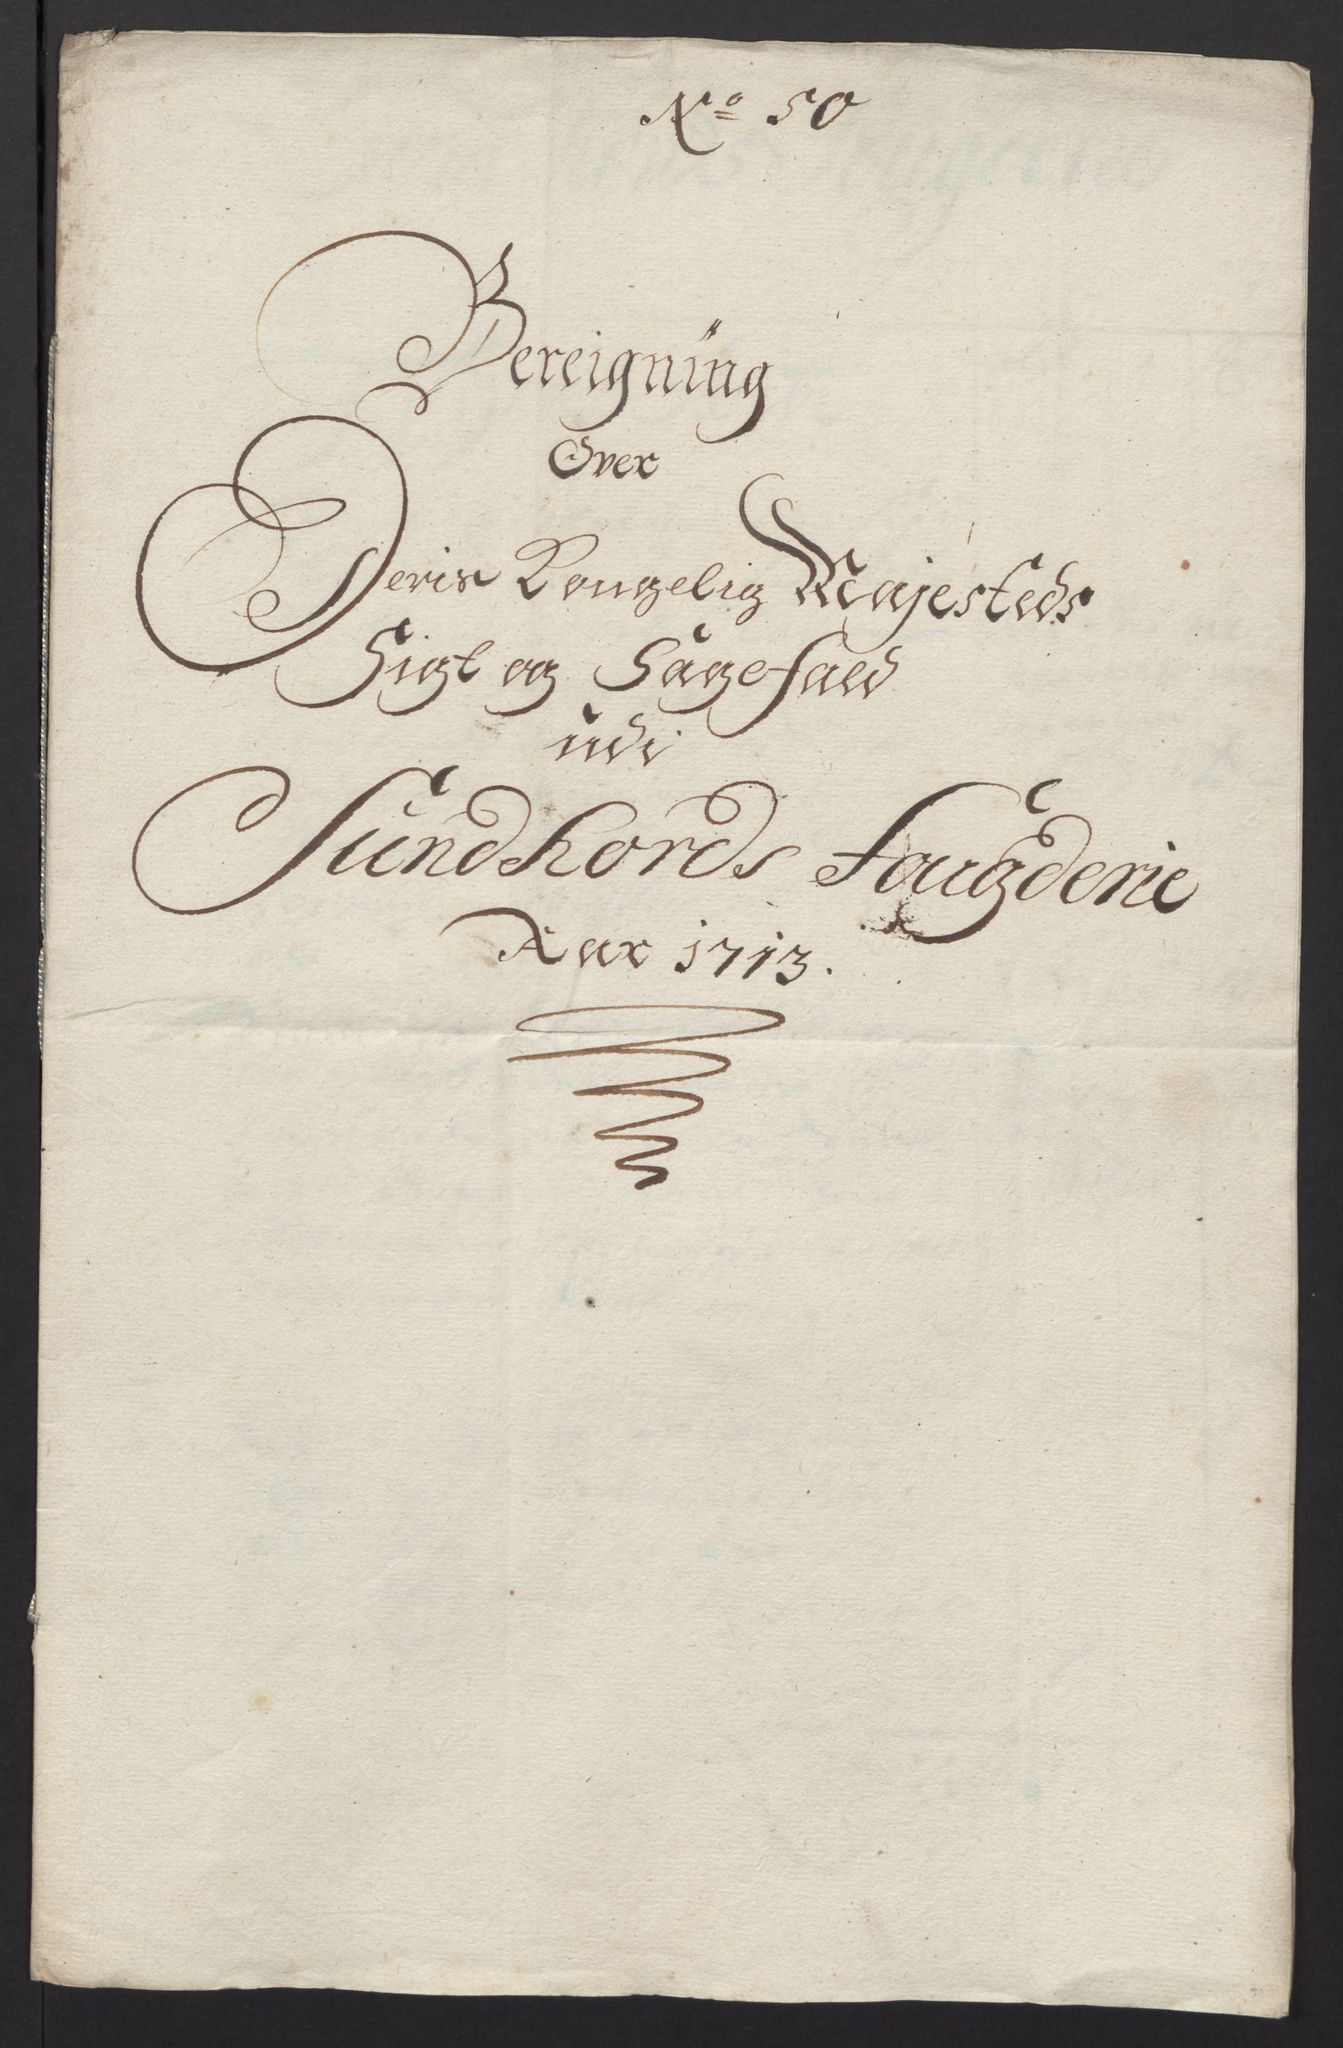 No 50
Bereigning
Over
Deris Kongelig Majesteds
Sigt og Sagefald
udi
Sundhords Faugderie
Aar 1713.